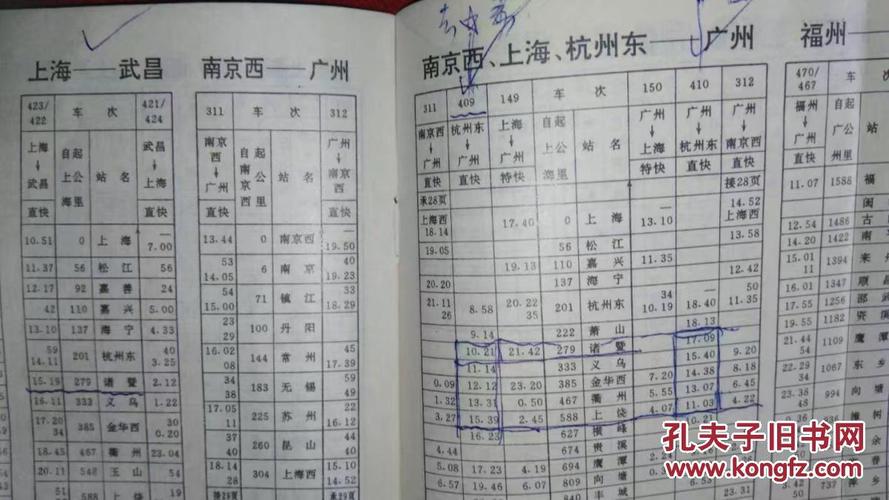 上海——武昌
423/422 车次 421/424
上海→武昌 自上海起公里 站名 武昌→上海
直快 直快
10.51 0 上海 — 7.00
11.37 56 松江 56
12.17 92 嘉善 24
42 110 嘉兴 5.00
13.10 137 海宁 4.33
59 14.11 201 杭州东 40 3.25
15.19 279 诸暨 2.12
16.11 333 义乌 1.22
17.20 34 385 金华西 30 0.20
18.45 467 衢州 23.04
20.11 548 玉山
南京西——广州
311 车次 312
南京西→广州 自南京西起公里 站名 广州→南京西
直快 直快
13.44 0 南京西 — 19.50
53 14.05 6 南京 40 19.23
54 15.00 71 镇江 33 18.29
23 29 100 丹阳
16.02 08 144 常州 45 17.39
34 38 183 无锡 59
17.05 11 225 苏州 22 16.12
260 昆山 44
18.14 28 304 上海西 15.10 14.52
接28页 承29页
南京西、上海、杭州东——广州
311 409 149 车次 150 410 312
南京西→广州 杭州东→广州 上海→广州 自上海起公里 站名 广州→上海 广州→杭州东 广州→南京西
直快 直快 特快 特快 直快 直快
承28页 接28页
上海西 18.14 17.40 0 上海 — 13.10 14.52 上海西
19.05 56 松江 13.58
19.13 110 嘉兴 11.35
20.20 137 海宁 12.42
21.11 26 8.58 20.22 35 201 杭州东 34 10.19 — 18.40 50 11.35
9.14 222 萧山 18.13
10.21 21.42 279 诸暨 17.09
11.14 333 义乌 15.40 9.20
0.09 12.12 23.20 385 金华西 7.20 14.38 8.18
1.32 13.31 0.50 467 衢州 5.55 13.07 6.45
3.27 15.39 2.45 588 上饶 4.07 11.03 4.22
16.23 627 横峰 10.21
4.44 674 贵溪
5.08 17.23 4.19 694 鹰潭
6.57 19.46 6.07 809 向塘
丰城 23.31
福州—
470/467 车
福州→广州 自广州起公里
直快
11.07 1588 福
闽
12.54 1486 古
14.20 1422 南
15.01 11 1394 来
16.01 1347 顺
17.55 1256 邵
19.55 1182 资
21.44 54 1109 鹰
22.29 34 1067 东
23.38 48 994 向
0.36 938 樟
757 萍
孔夫子旧书网
www.kongfz.com